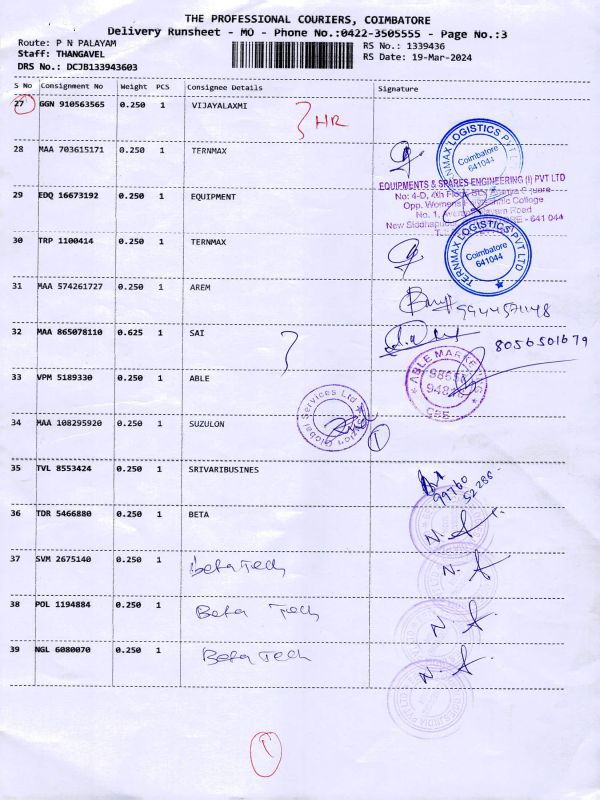 THE PROFESSIONAL COURIERS, COIMBATORE
Delivery Runsheet - MO - Phone No.:0422-3505555 - Page No.:3
Route: P N PALAYAM
Staff: THANGAVEL
DRS No.: DCJB133943603
RS No.: 1339436
RS Date: 19-Mar-2024
S No Consignment No Weight PCS Consignee Details Signature
27 GGN 910563565 0.250 1 VIJAYALAXMI HR
28 MAA 703615171 0.250 1 TERNMAX
TERNMAX LOGISTICS PVT LTD
Coimbatore
641044
29 EDQ 16673192 0.250 1 EQUIPMENT
EQUIPMENTS & SPARES ENGINEERING (I) PVT LTD
No: 4-D, 4th Floor Square
Opp. Women's College
No. 1, Road
New - 641 044
30 TRP 1100414 0.250 1 TERNMAX
TERNMAX LOGISTICS PVT LTD
Coimbatore
641044
31 MAA 574261727 0.250 1 AREM
9944571148
32 MAA 865078110 0.625 1 SAI
8056501679
33 VPM 5189330 0.250 1 ABLE
ABLE MARKETING
CBE
34 MAA 108295920 0.250 1 SUZULON
Global Services Ltd
1
35 TVL 8553424 0.250 1 SRIVARIBUSINES
99760
52286
36 TDR 5466880 0.250 1 BETA
N.
37 SVM 2675140 0.250 1 Beta Tech
N.
38 POL 1194884 0.250 1 Beta Tech
N.
39 NGL 6080070 0.250 1 Beta Tech
N.
1